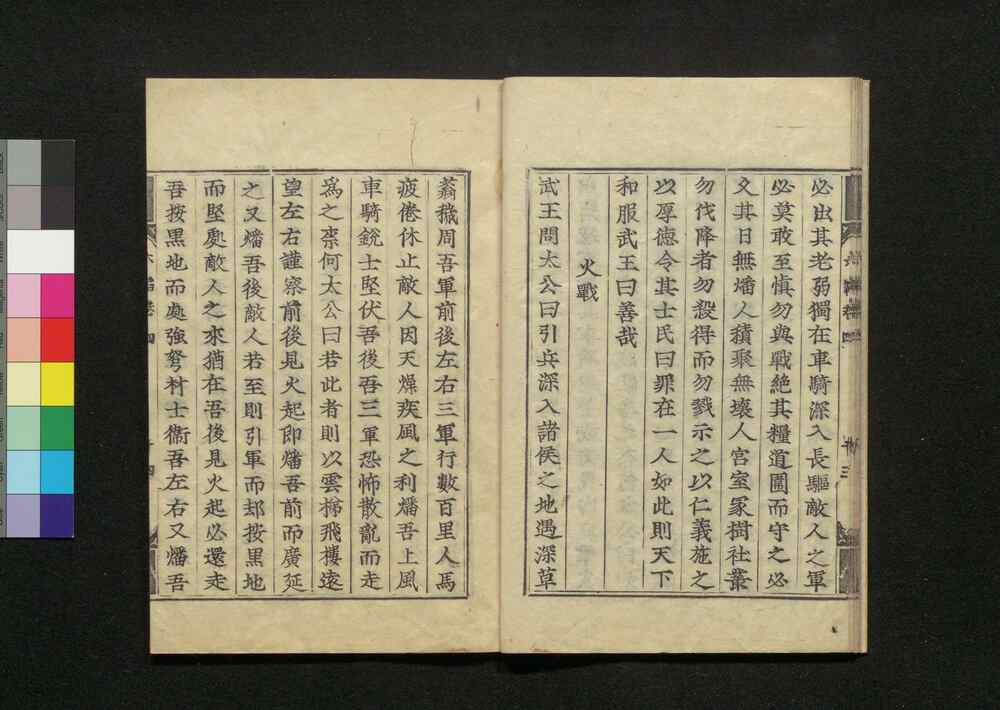 必出其老弱獨在車騎深入長驅敵人之軍
必莫敢至愼勿與戰絶其糧道圍而守之必
久其日無燔人積聚無壞人宮室冢樹社叢
勿伐降者勿殺得而勿戮示之以仁義施之
以厚德令其士民曰罪在一人如此則天下
和服武王曰善哉
火戰
武王問太公曰引兵深入諸侯之地遇深草
蓊穢周吾軍前後左右三軍行數百里人馬
疲倦休止敵人因天燥疾風之利燔吾上風
車騎銳士堅伏吾後吾三軍恐怖散亂而走
爲之柰何太公曰若此者則以雲梯飛樓遠
望左右謹察前後見火起即燔吾前而廣延
之又燔吾後敵人若至則引軍而却按黒地
而堅處敵人之來猶在吾後見火起必還走
吾按黒地而處強弩材士衛吾左右又燔吾